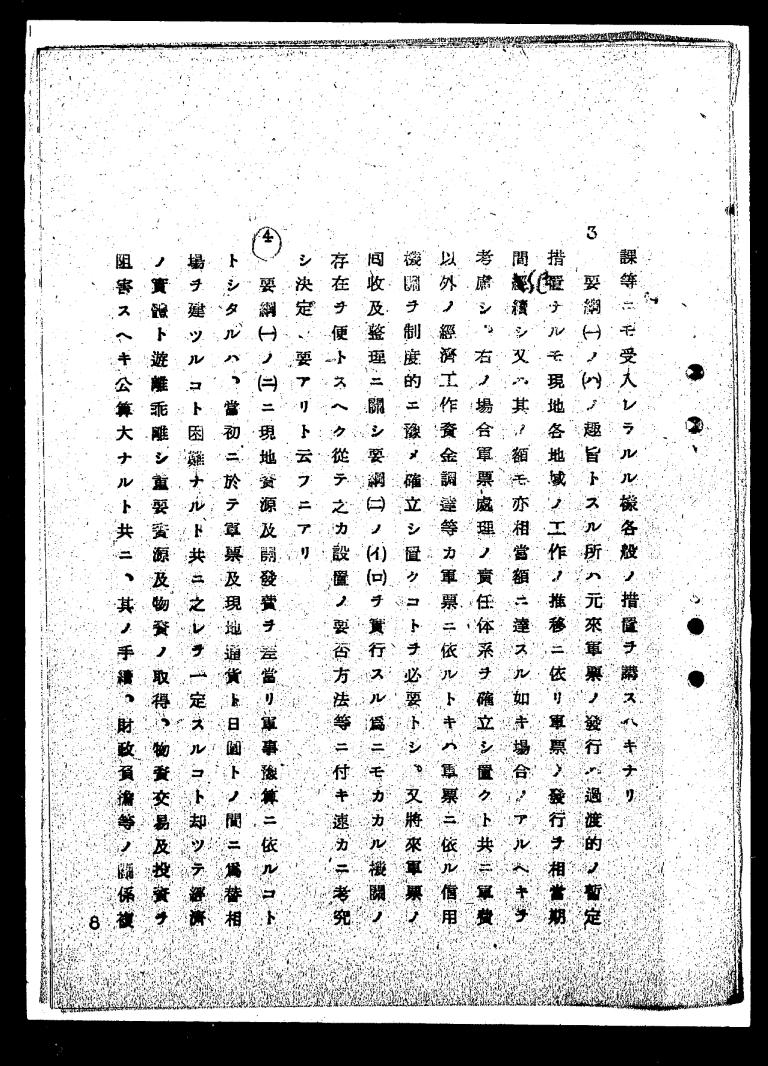 課等ニモ受入レラルル樣各般ノ措置ヲ講スヘキナリ
3 要綱㈠ノ(ハ)ノ趣旨トスル所ハ元來軍票ノ發行ハ過渡的ノ暫定
措置ナルモ現地各地域ノ工作ノ推移ニ依リ軍票ノ發行ヲ相當期
間繼續シ又ハ其ノ額モ亦相當額ニ達スル如キ場合ノアルヘキヲ
考慮シ、右ノ場合軍票處理ノ責任体系ヲ確立シ置クト共ニ軍費
以外ノ經濟工作資金調達等カ軍票ニ依ルトキハ軍票ニ依ル信用
機關ヲ制度的ニ豫メ確立シ置クコトヲ必要トシ、又將來軍票ノ
囘收及整理ニ關シ要綱㈡ノ(イ)(ロ)ヲ實行スル爲ニモカカル機關ノ
存在ヲ便トスヘク從テ之カ設置ノ要否方法等ニ付キ速カニ考究
シ決定ノ要アリト云フニアリ
4 要綱㈠ノ(ニ)ニ現地資源及開發費ヲ差當リ軍事豫算ニ依ルコト
トシタルハ、當初ニ於テ軍票及現地通貨ト日圓トノ間ニ爲替相
場ヲ建ツルコト困難ナルト共ニ之レヲ一定スルコト却ツテ經濟
ノ實體ト遊離乖離シ重要資源及物資ノ取得、物資交易及投資ヲ
阻害スヘキ公算大ナルト共ニ、其ノ手續、財政負擔等ノ關係複
8